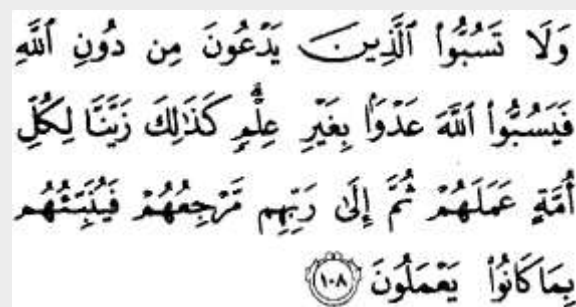 وَلَا تَسُبُّوا۟ ٱلَّذِينَ يَدْعُونَ مِن دُونِ ٱللَّهِ
فَيَسُبُّوا۟ ٱللَّهَ عَدْوًۢا بِغَيْرِ عِلْمٍۗ كَذَٰلِكَ زَيَّنَّا لِكُلِّ
أُمَّةٍ عَمَلَهُمْ ثُمَّ إِلَىٰ رَبِّهِم مَّرْجِعُهُمْ فَيُنَبِّئُهُم
بِمَا كَانُوا۟ يَعْمَلُونَ ١٠٨